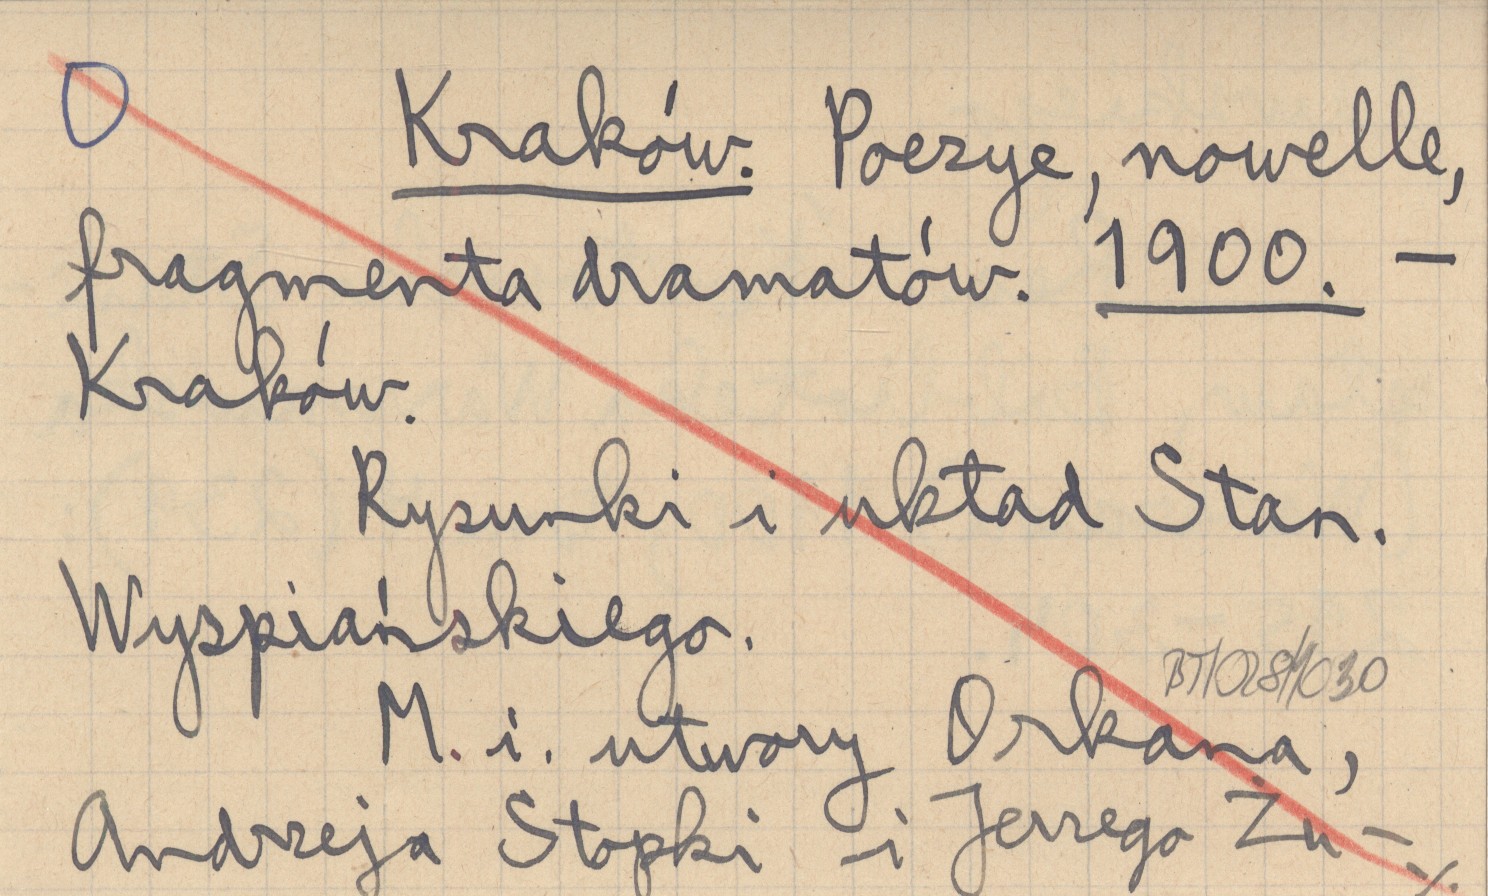 O Kraków. Poezye, nowelle,
fragmenta dramatów. 1900. —
Kraków.
Rysunki i układ Stan.
Wyspiańskiego.
BT/028/1030
M. i. utwory Orkana,
Andrzeja Stopki i Jerzego Żu-
./.